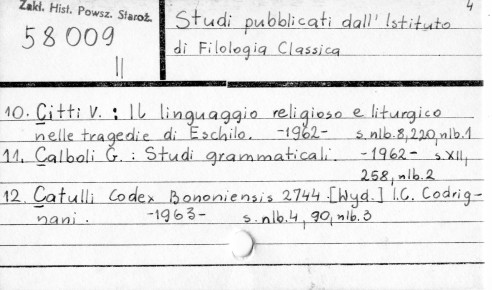 Zakł. Hist. Powsz. Staroż.
4
58009
II
Studi pubblicati dall' Istituto
di Filologia Classica
10. Citti V. : Il linguaggio religioso e liturgico
nelle tragedie di Eschilo. -1962- s.nlb.8,220,nlb.1
11. Calboli G. : Studi grammaticali. -1962- s.XII,
258,nlb.2
12. Catulli Codex Bononiensis 2744.[Wyd.] I.C. Codrig-
nani. -1963- s.nlb.4, 90,nlb.3